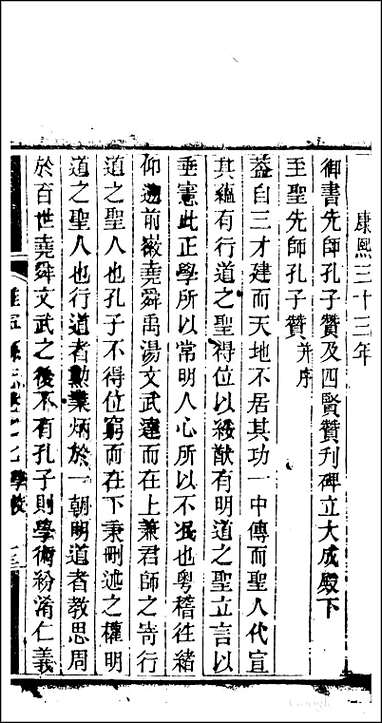 康熙三十三年
御書先師孔子贊及四賢贊刋碑立大成殿下
至聖先師孔子贊并序
蓋自三才建而天地不居其功一中傳而聖人代宣
其蘊有行道之聖得位以綏猷有明道之聖立言以
垂憲此正學所以常明人心所以不泯也粤稽徃緒
仰遡前徽堯舜禹湯文武達而在上兼君師之寄行
道之聖人也孔子不得位窮而在下秉刪述之權明
道之聖人也行道者勲業炳於一朝明道者教思周
於百世堯舜文武之後不有孔子則學術紛淆仁義
志卷之七 學校